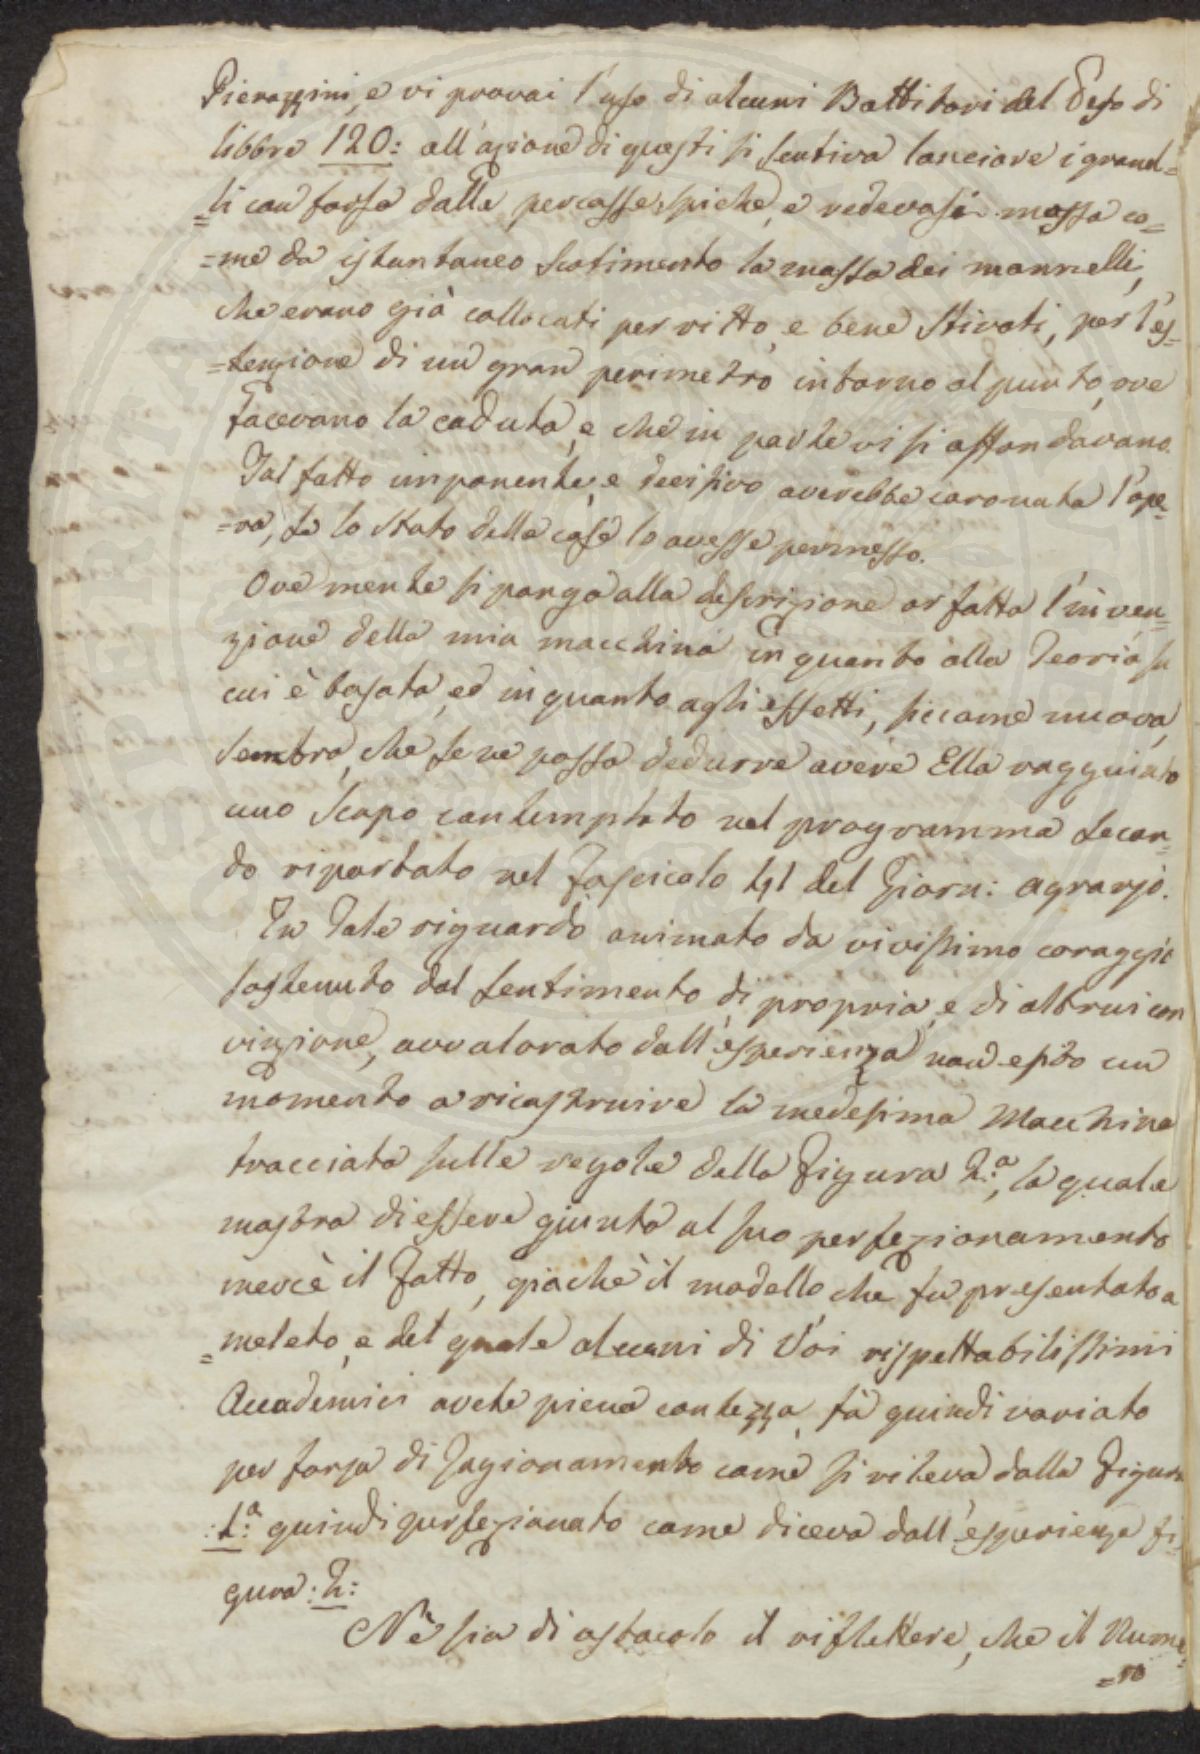 Pierazzini, e vi provai l'uso di alcuni Battitori del Peso di
libbre 120: all'azione di questi si sentiva lanciare i granel=
=li con forza dalle percosse spiche, e vedevasi mossa co=
=me da istantaneo scotimento la massa dei mannelli,
che erano già collocati per ritto, e bene stivati, per l'es=
=tenzione di un gran perimetro intorno al punto, ove
facevano la caduta, e che in parte vi si affondavano.
Tal fatto imponente, e decisivo averebbe coronata l'ope=
=ra, se lo stato delle cose lo avesse permesso.
Ove mente si ponga alla descrizione or fatta l'inven=
zione della mia macchina in quanto alla Teoria su
cui è basata, ed in quanto agli effetti, siccome nuova,
sembra, che se ne possa dedurre avere Ella ragguiato
uno scopo contemplato nel programma secon=
do riportato nel Fascicolo 41 del Giorn: agrario.
In Tale riguardo animato da vivissimo coraggio
sostenuto dal sentimento di propria, e di altrui con
vinzione, avvalorato dall'esperienza non esito un
momento a ricostruire la medesima Macchina
tracciata sulle regole della Figura 2.ª, la quale
mostra di essere giunta al suo perfezionamento
mercè il Fatto, giachè il modello che fu presentato a
=meleto, e del quale alcuni di Voi rispettabilissimi
Accademici avete piena contezza, fù quindi variato
per forza di ragionamento come si rileva dalla Figura
1.ª quindi perfezionato come diceva dall'esperienza fi=
gura: 2:
Nè sia di ostacolo il riflettere, che il Nume=
=ro